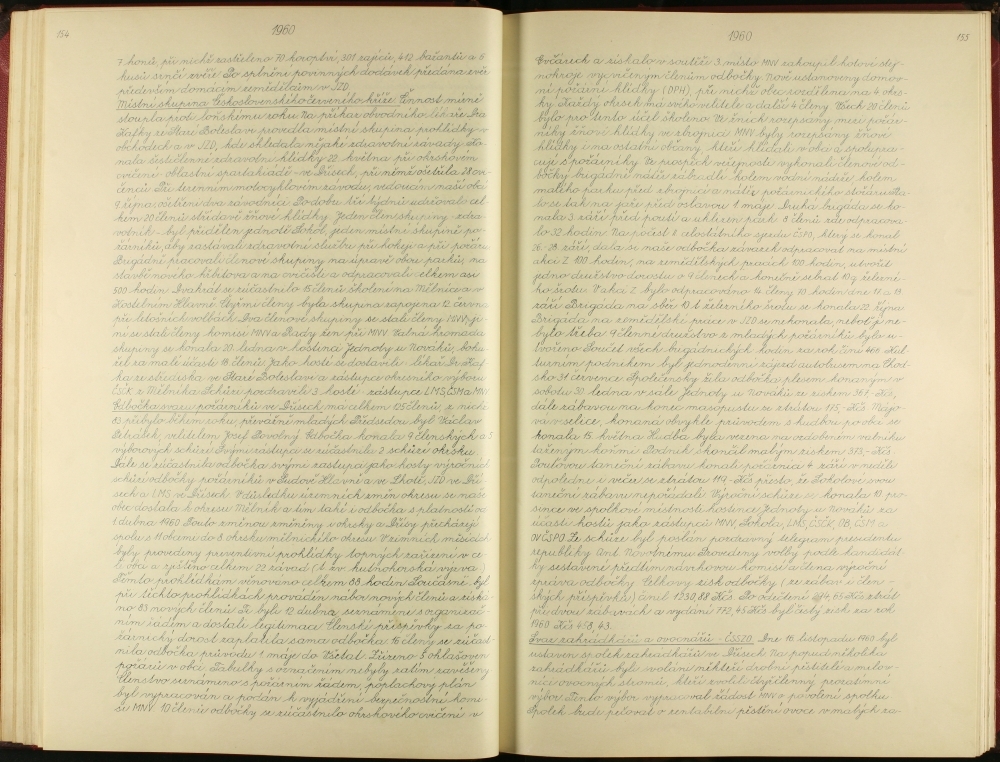 154
1960
7 honů, při nichž zastřeleno 70 koroptví, 301 zajíců, 412 bažantů a 6
kusů srnčí zvěře. Po splnění povinných dodávek předána zvěř
především domácím zemědělcům v JZD.
Místní skupina Československého červeného kříže. Činnost mírně
stoupla proti loňskému roku. Na příkaz obvodního lékaře Dra
Hafky ze Staré Boleslavi provedla místní skupina prohlídky v
obchodech a v JZD, kde shledala nějaké zdravotní závady. Ko-
nala šestičlenné zdravotní hlídky 22. května při okrskovém
cvičení oblastní spartakiády ve Dřísech, při němž ošetřila 28 cvi-
čenců. Při terénním motocyklovém závodu, vedoucím naší obcí
9. října ošetřeni dva závodníci. Po dobu tří týdnů udržovali cel-
kem 20 členů střídavě žňové hlídky. Jeden člen skupiny - zdra-
votník - byl přidělen jednotě Sokol, jeden místní skupině po-
žárníků, aby zastávali zdravotní službu při hokeji a při požáru.
Brigádně pracovali členové skupiny na úpravě obce, parků, na
stavbě nového hřbitova a na cvičišti a odpracovali celkem asi
500 hodin. Dvakrát se zúčastnilo 15 členů školení na Mělníce a v
Kostelním Hlavně. Čtyřmi členy byla skupina zapojena 12. června
při letošních volbách. Dva členové skupiny se stali členy MNV, ji-
ní se stali členy komisí MNV a Rady žen při MNV. Valná hromada
skupiny se konala 20. ledna v hostinci Jednoty u Nováků, bohu-
žel za malé účasti 18 členů. Jako hosté se dostavili: lékař Dr. Haf-
ka ze střediska ve Staré Boleslavi a zástupce okresního výboru
ČSČK z Mělníka. Schůzi pozdravili 3 hosté - zástupce LMS, ČSM a MNV.
Odbočka svazu požárníků ve Dřísech má celkem 125 členů, z nichž
83 přibylo během roku, převážně mladých. Předsedou byl Václav
Petrásek, velitelem Josef Povolný. Odbočka konala 9 členských a 5
výborových schůzí. Svými zástupci se zúčastnila 2 schůzí okrsku.
Dále se zúčastnila odbočka svými zástupci jako hosty výročních
schůzí odbočky požárníků v Sudově Hlavně a ve Lhotě, JZD ve Dří-
sech a LMS ve Dřísech. V důsledku územních změn okresu se naše
obec dostala k okresu Mělník a tím také i odbočka s platností od
1. dubna 1960. Touto změnou změněny i okrsky a Dřísy přecházejí
spolu s 11 obcemi do 8. okrsku mělnického okresu. V zimních měsících
byly provedeny preventivní prohlídky topných zařízení v ce-
lé obci a zjištěno celkem 22 závad (t. zv. kutnohorská výzva).
Těmto prohlídkám věnováno celkem 33 hodin. Současně byl
při těchto prohlídkách prováděn nábor nových členů a získá-
no 83 nových členů. Ti byli 12. dubna seznámeni s organizač-
ním řádem a dostali legitimace. Členské příspěvky za po-
žárnický dorost zaplatila sama odbočka. 16 členů se účast-
nila odbočka průvodu 1. máje do Všetat. Zřízeno 5 ohlašoven
požárů v obci. Tabulky s označením nebyly zatím zavěšeny.
Členstvo seznámeno s požárním řádem, poplachový plán
byl vypracován a podán k vyjádření bezpečnostní komi-
si MNV. 10 členů odbočky se zúčastnilo okrskového cvičení v
1960
155
Cvrčicích a získalo v soutěži 3. místo. MNV zakoupil látkové stej-
nokroje vycvičeným členům odbočky. Nově ustanoveny domov-
ní požární hlídky (DPH), při nichž obec rozdělena na 4 okrs-
ky. Každý okrsek má svého velitele a další 4 členy. Všech 20 členů
bylo pro tento účel školeno. Ve žních rozepsány mezi požár-
níky žňové hlídky ve zbrojnici. MNV byly rozepsány žňové
hlídky i na ostatní občany, kteří hlídali v obci a spolupra-
cují s požárníky. Ve prospěch veřejnosti vykonali členové od-
bočky brigádně nátěr zábradlí kolem vodní nádrže, kolem
malého parku před zbrojnicí a nátěr požárnického stožáru. Sta-
lo se tak na jaře před oslavou 1. máje. Druhá brigáda se ko-
nala 3. září před poutí a uklizen park. 8 členů zde odpracova-
lo 32 hodin. Na počest II. celostátního sjezdu ČSPO, který se konal
26.-28. září, dala se naše odbočka závazek odpracovat na místní
akci Z 100 hodin, na zemědělských pracích 100 hodin, utvořit
jedno družstvo dorostu o 9 členech a konečně sebrat 10 q železné-
ho šrotu. V akci Z bylo odpracováno 14 členy 70 hodin dne 11. a 18.
září. Brigáda na sběr 10 q železného šrotu se konala 22. října.
Brigáda na zemědělské práce v JZD se nekonala, neboť jí ne-
bylo třeba. 9členné družstvo z mladých požárníků bylo u-
tvořeno. Součet všech brigádnických hodin za rok činí 466. Kul-
turním podnikem byl jednodenní zájezd autobusem na Chod-
sko 31. července. Společensky žila odbočka plesem konaným v
sobotu 30. ledna v sále Jednoty u Nováků se ziskem 367,- Kčs,
dále zábavou na konec masopustu se ztrátou 115,- Kčs. Májo-
vá veselice, konaná obvykle průvodem s hudbou po obci se
konala 15. května. Hudba byla vezena na vyzdobeném valníku
taženým koňmi. Podnik skončil malým ziskem 373,- Kčs.
Pouťovou taneční zábavu konali požárníci 4. září v neděli
odpoledne i večer se ztrátou 119,- Kčs přesto, že Sokolové svou
taneční zábavu nepořádali. Výroční schůze se konala 10. pro-
since ve spolkové místnosti hostince Jednoty u Nováků za
účasti hostů jako zástupců MNV, Sokola, LMS, ČSČK, OB, ČSM a
OV ČSPO. Ze schůze byl poslán pozdravný telegram presidentu
republiky Ant. Novotnému. Provedeny volby podle kandidát-
ky sestavené předtím návrhovou komisí a čtena výroční
zpráva odbočky. Celkový zisk odbočky (ze zábav i člen-
ských příspěvků) činil 1230,88 Kčs. Po odečtení 234,65 Kčs ztrát
při dvou zábavách a vydání 772,45 Kčs byl čistý zisk za rok
1960 Kčs 458,43.
Svaz zahrádkářů a ovocnářů - ČSSZO. Dne 16. listopadu 1960 byl
ustaven spolek zahrádkářů ve Dřísech. Na popud několika
zahrádkářů byli svoláni někteří drobní pěstitelé a milov-
níci ovocných stromů, kteří zvolili čtyřčlenný prozatímní
výbor. Tento výbor vypracoval žádost MNV o povolení spolku.
Spolek bude pečovat o rentabilní pěstění ovoce v malých za-